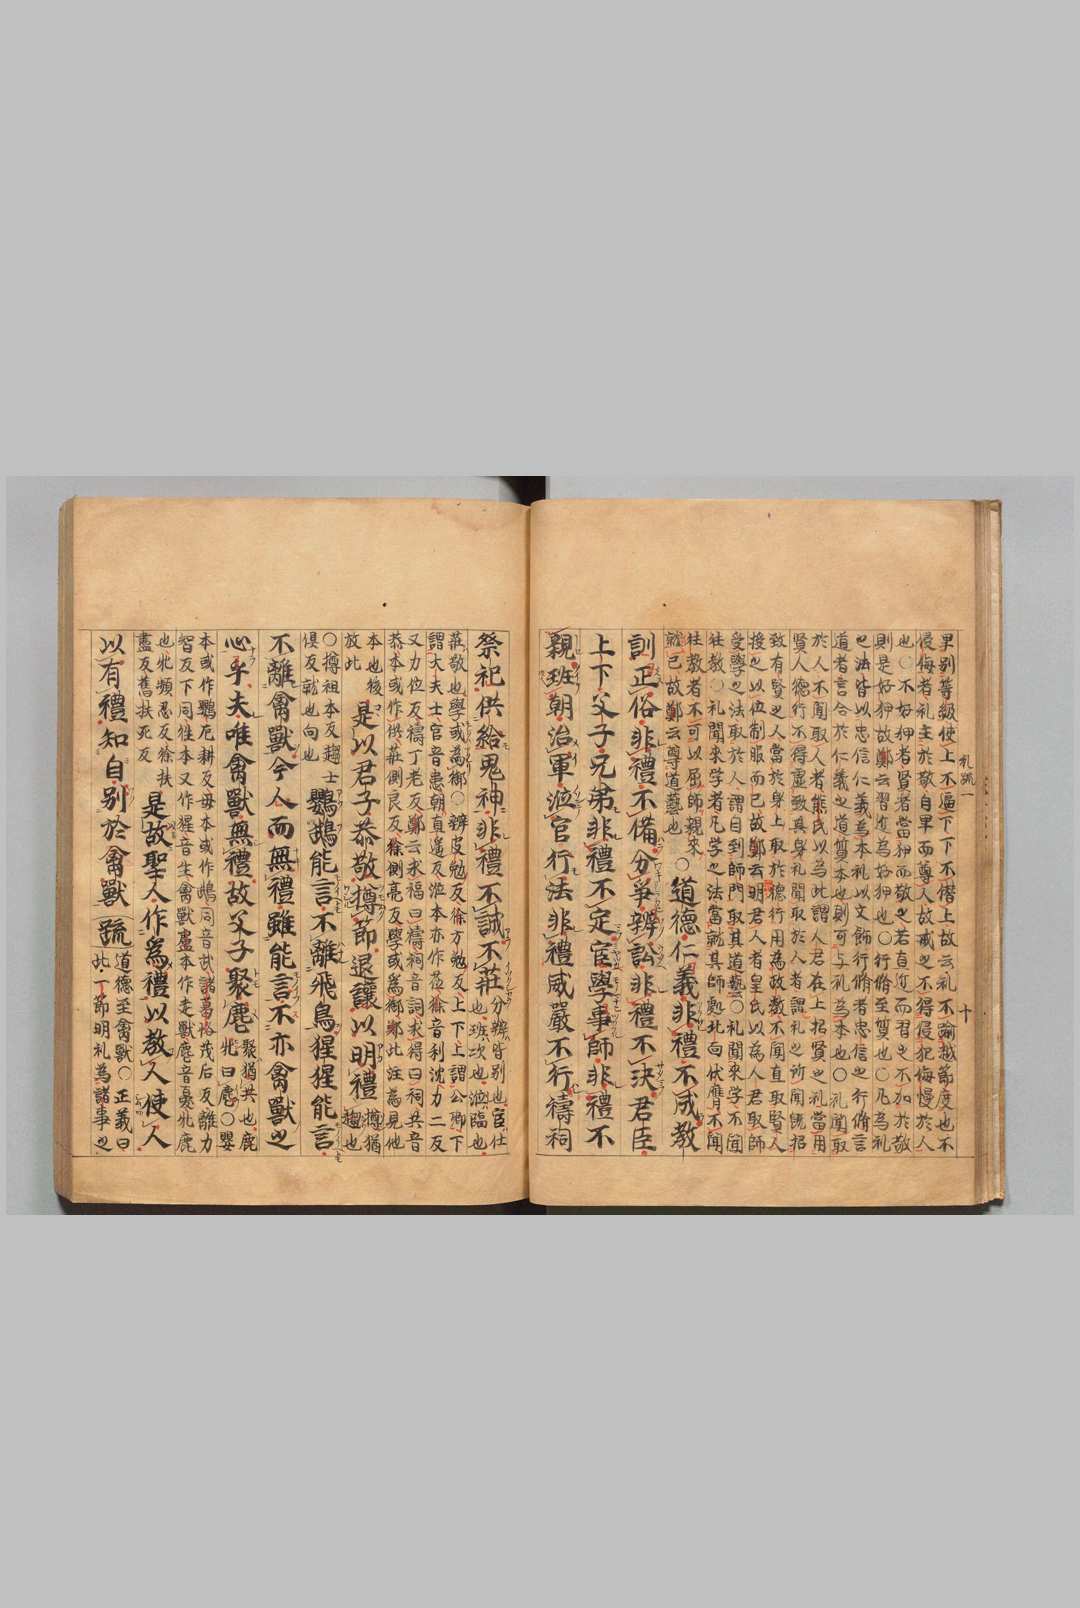 礼疏一　十
卑别等級使上不逼下下不僣上故云礼不踰越節度也不
侵侮者礼主於敬自卑而尊人故戒之不得侵犯侮慢於人
也○不好狎者賢者當狎而敬之若直近而習之不加於敬
則是好狎故鄭云習近為好狎也○行脩至質也○凡為礼
之法皆以忠信仁義為本礼以文飾行脩者忠信之行脩言
道者言合於仁義之道質本也則可与礼為本也○礼聞取
於人不聞取人者熊氏以為此謂人君在上招賢之礼當用
賢人德行不得虛致其身礼聞取於人者謂礼之所聞既招
致有賢之人當於身上取於德行用為政教不聞直取賢人
授之以位制服而已故鄭云明君人者皇氏以為人君取師
受學之法取於人謂自到師門取其道藝○礼聞來学不聞
往教○礼聞來学者凡学之法當就其師處北向伏膺不聞
往教者不可以屈師親來
就已故鄭云尊道藝也○道德仁義非禮不成教
訓正俗非禮不備分爭辨訟非禮不決君臣
上下父子兄弟非禮不定宦學事師非禮不
親班朝治軍涖官行法非禮威嚴不行禱祠
祭祀供給鬼神非禮不誠不莊分辨皆别也宦仕也班次也涖臨也
莊敬也學或為御○辨皮勉反徐方勉反上下上謂公卿下
謂大夫士官音患朝直遥反涖本亦作莅徐音利沈力二反
又力位反禱丁老反鄭云求福曰禱祠音詞求得曰祠共音
恭本或作供莊側良反徐側亮反學或為御鄭此注為見他
本也後放此是以君子恭敬撙節退讓以明禮撙猶趨也
○撙祖本反趨士俱反就也向也鸚鵡能言不離飛鳥猩猩能言
不離禽獸今人而無禮雖能言不亦禽獸之
心乎夫唯禽獸無禮故父子聚麀聚猶共也鹿牝曰麀○嬰
本或作鸚厄耕反母本或作鵡同音武諸葛恪茂后反離力
智反下同牲本又作猩音生禽獸盧本作走獸麀音憂牝鹿
也牝頻忍反徐扶盡反舊扶死反是故聖人作為禮以教人使人
以有禮知自别於禽獸疏道德至禽獸○正義曰此一節明礼為諸事之